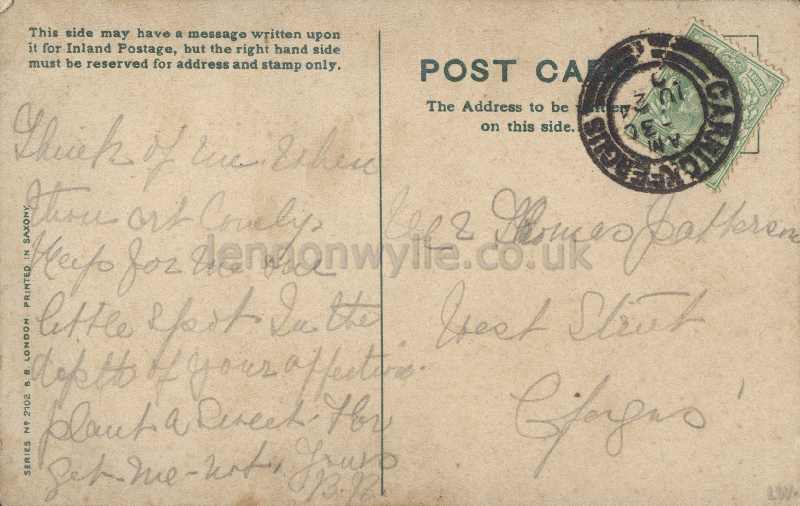 This side may have a message written upon
it for Inland Postage, but the right hand side
must be reserved for address and stamp only.
Think of me when
thou art lonely
Keep for me one
little spot In the
depth of your affection
plant a sweet For
get-me-not. Yours
B.B
SERIES No 2102 B. B. LONDON. PRINTED IN SAXONY.
POST CARD
The Address to be written
on this side.
CARRICKFERGUS
AM
30
JU
Thomas Patterson
West Street
C/fergus
jennonwylie.co.uk
LW